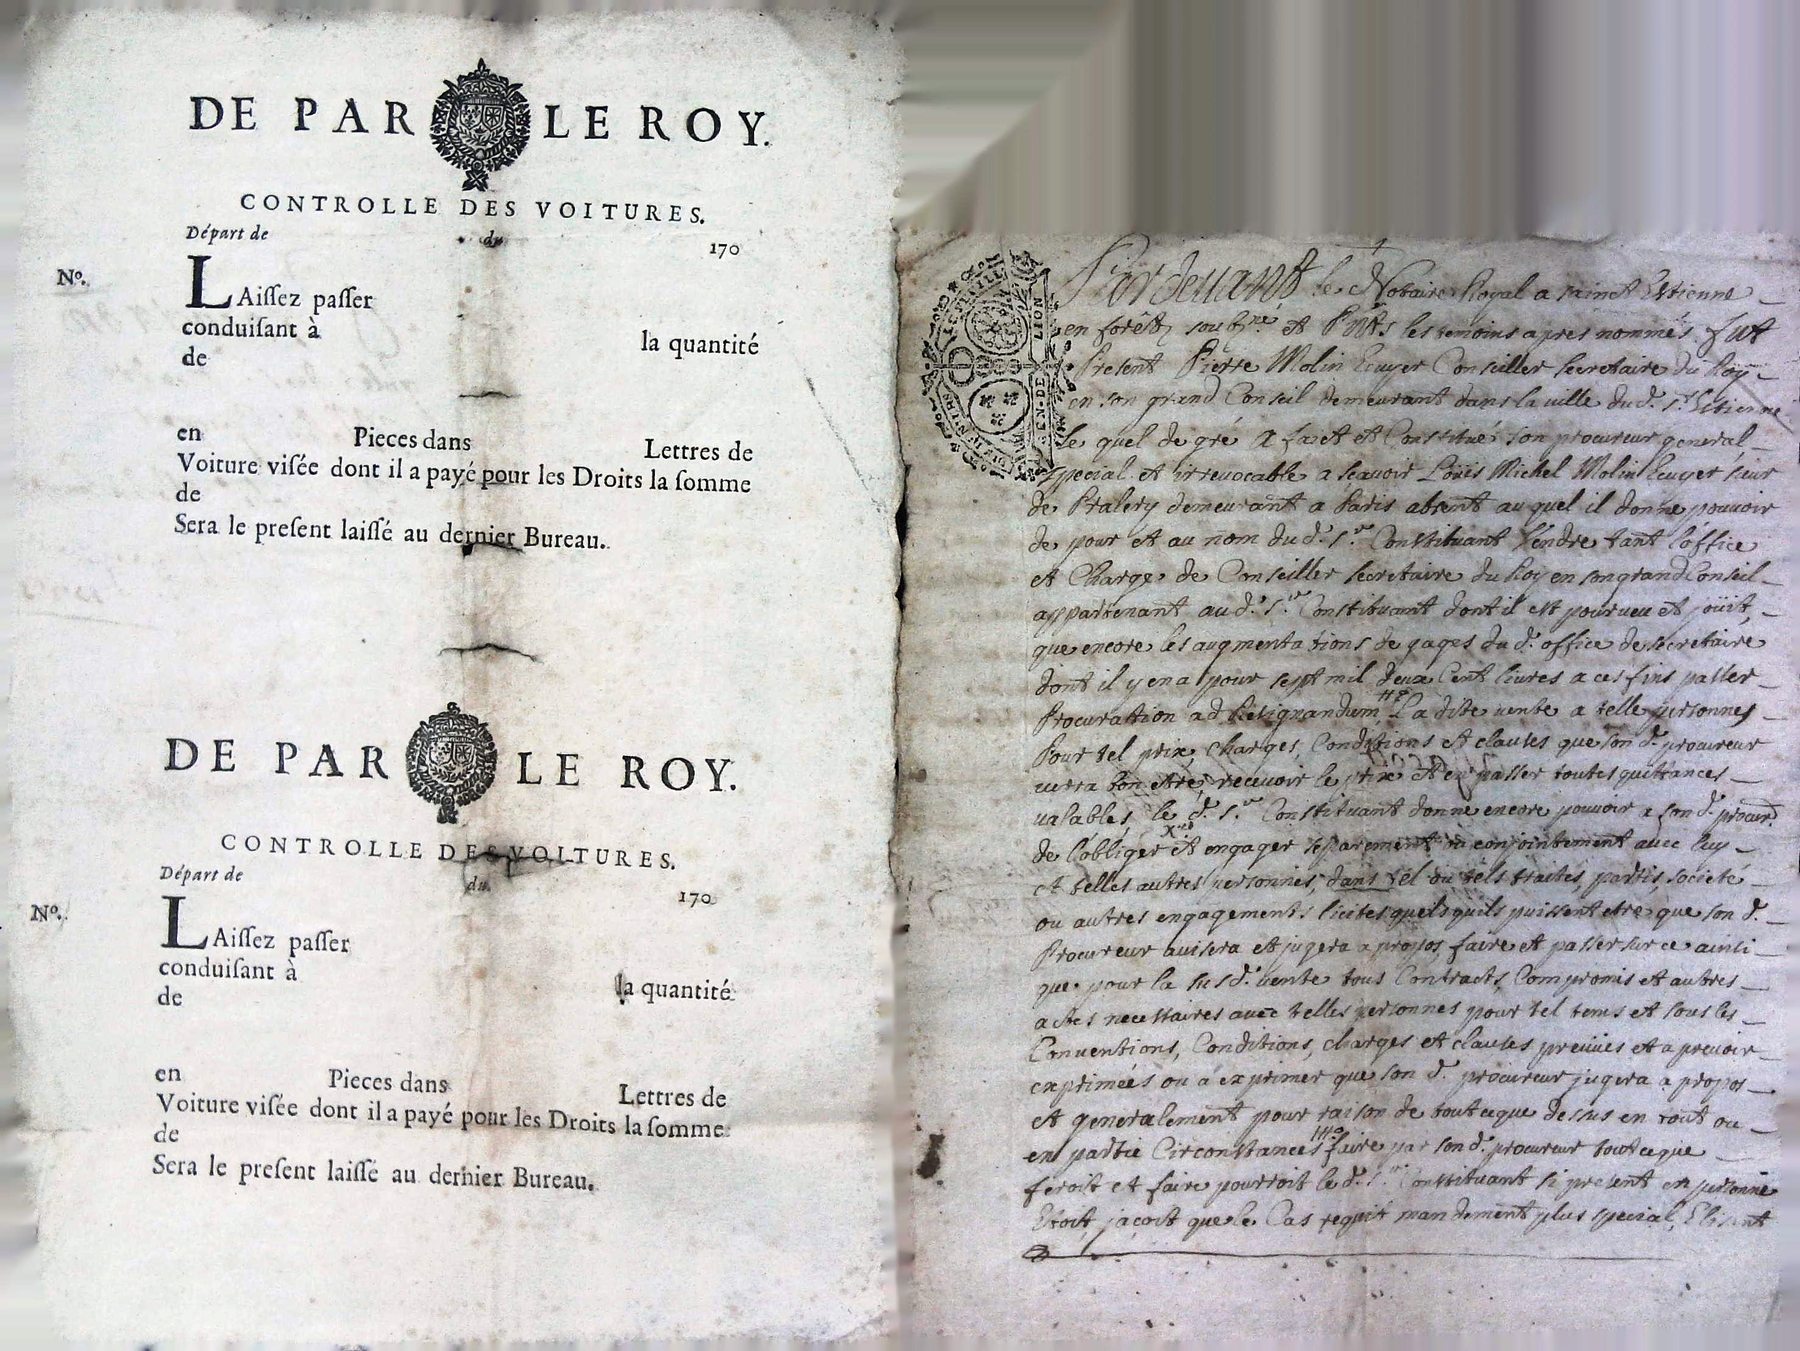 DE PAR LE ROY.
CONTROLLE DES VOITURES.
Départ de du 170
Nº.
LAiſſez paſſer
conduiſant à la quantité
de
en Pieces dans Lettres de
Voiture viſée dont il a payé pour les Droits la ſomme
de
Sera le preſent laiſſé au dernier Bureau.
DE PAR LE ROY.
CONTROLLE DES VOITURES.
Départ de du 170
Nº.
LAiſſez paſſer
conduiſant à la quantité
de
en Pieces dans Lettres de
Voiture viſée dont il a payé pour les Droits la ſomme
de
Sera le preſent laiſſé au dernier Bureau.
GEN. DE LION
Pardevant le Notaire Royal a sainct Estienne
en forêtz soubz.ne et les temoins apres nommés fut
Present Pierre Molin Ecuyer Conseiller secretaire du Roy
en son grand Conseil demeurant dans la ville dud. St Estienne
le quel de gré a faict et Constitué son procureur general
special et irrevocable a sçavoir Loüis Michel Molin Ecuyer sieur
de Pralery demeurant a Paris absent au quel il donne pouvoir
de pour et au nom dud. Sr. Constituant Vendre tant l'office
et Charge de Conseiller secretaire du Roy en son grand Conseil
appartenant aud. Sr. Constituant dont il est pourveu et joüit,
que encore les augmentations de gages dud. office de secretaire
dont il y en a pour sept mil deux Cent livres a ces fins passer
Procuration ad Resignandum, La dite vente a telle personnes
Pour tel prix, charges, Conditions et clauses que son d. procureur
verra bon etre, recevoir le prix et en passer toutes quittances
valables, le d. Sr. Constituant donne encore pouvoir a son d. procur.
de l'obliger et engager separement ou conjointement avec luy
et telles autres personnes, dans tel ou tels traités, partis, societé
ou autres engagements licites quels quils puissent etre que son d.
Procureur avisera et jugera a propos, faire et passer sur ce ainsi
que pour la susd. vente tous Contracts, Compromis et autres
actes necessaires avec telles personnes pour tel tems et sous les
Conventions, Conditions, charges et clauses preuües et a prevoir
exprimées ou a exprimer que son d. procureur jugera a propos
et generalement pour raison de tout ce que dessus en tout ou
en partie Circonstances faire par son d. procureur tout ce que
feroit et faire pourroit le d. Sr. Constituant si present en personne
Etoit, jaçoit que le Cas requit mandement plus special, Elisant